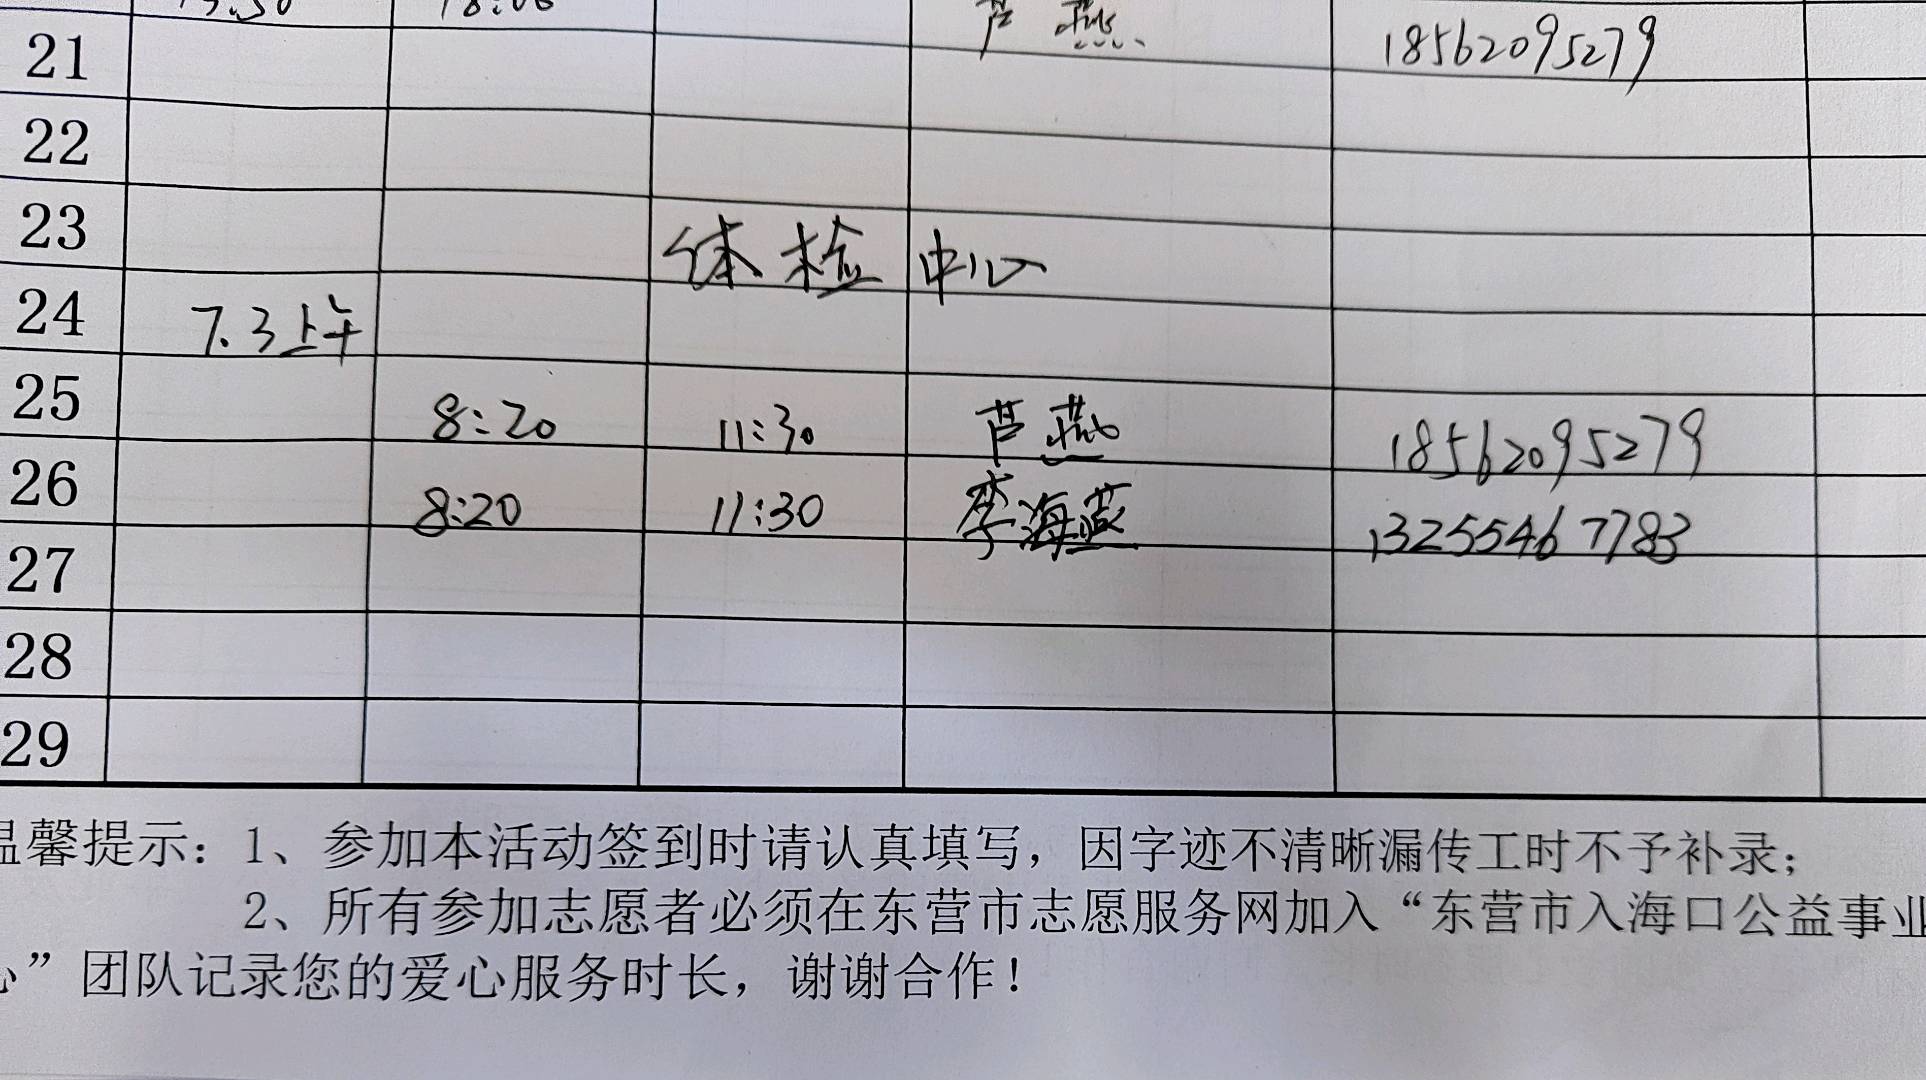 芦燕 18562095279
21
22
23
体检中心
24 7.3上午
25 8:20 11:30 芦燕 18562095279
26 8:20 11:30 李海燕 13255467783
27
28
29
温馨提示：1、参加本活动签到时请认真填写，因字迹不清晰漏传工时不予补录；
2、所有参加志愿者必须在东营市志愿服务网加入“东营市入海口公益事业
心”团队记录您的爱心服务时长，谢谢合作！